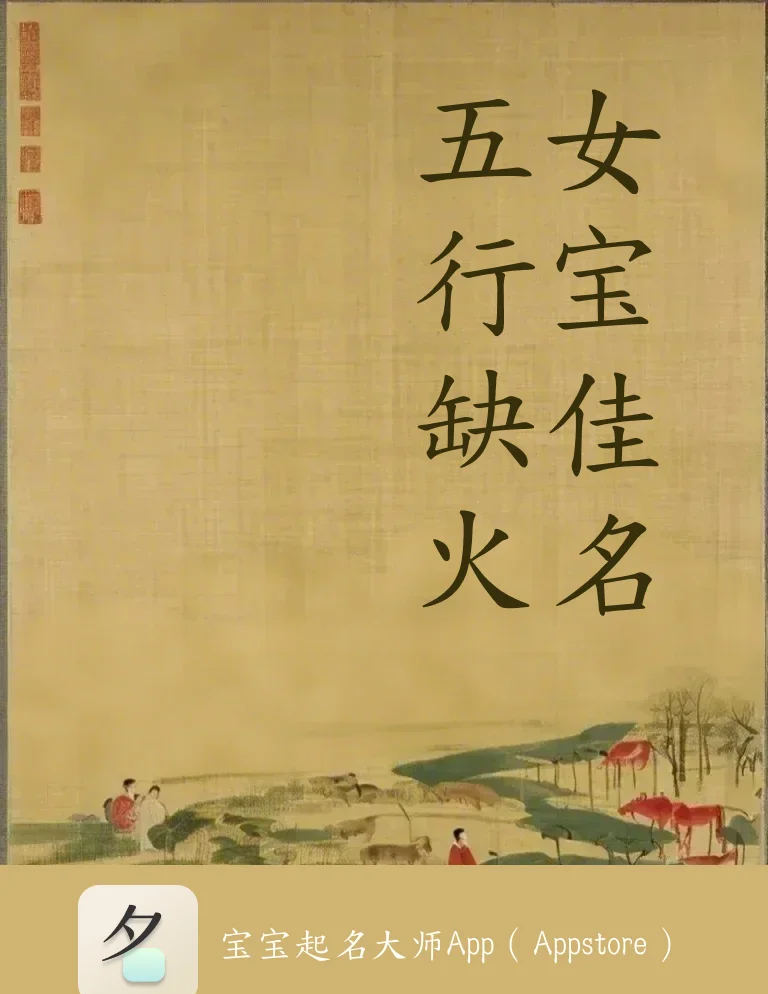 女宝佳名
五行缺火
夕
宝宝起名大师App（Appstore）